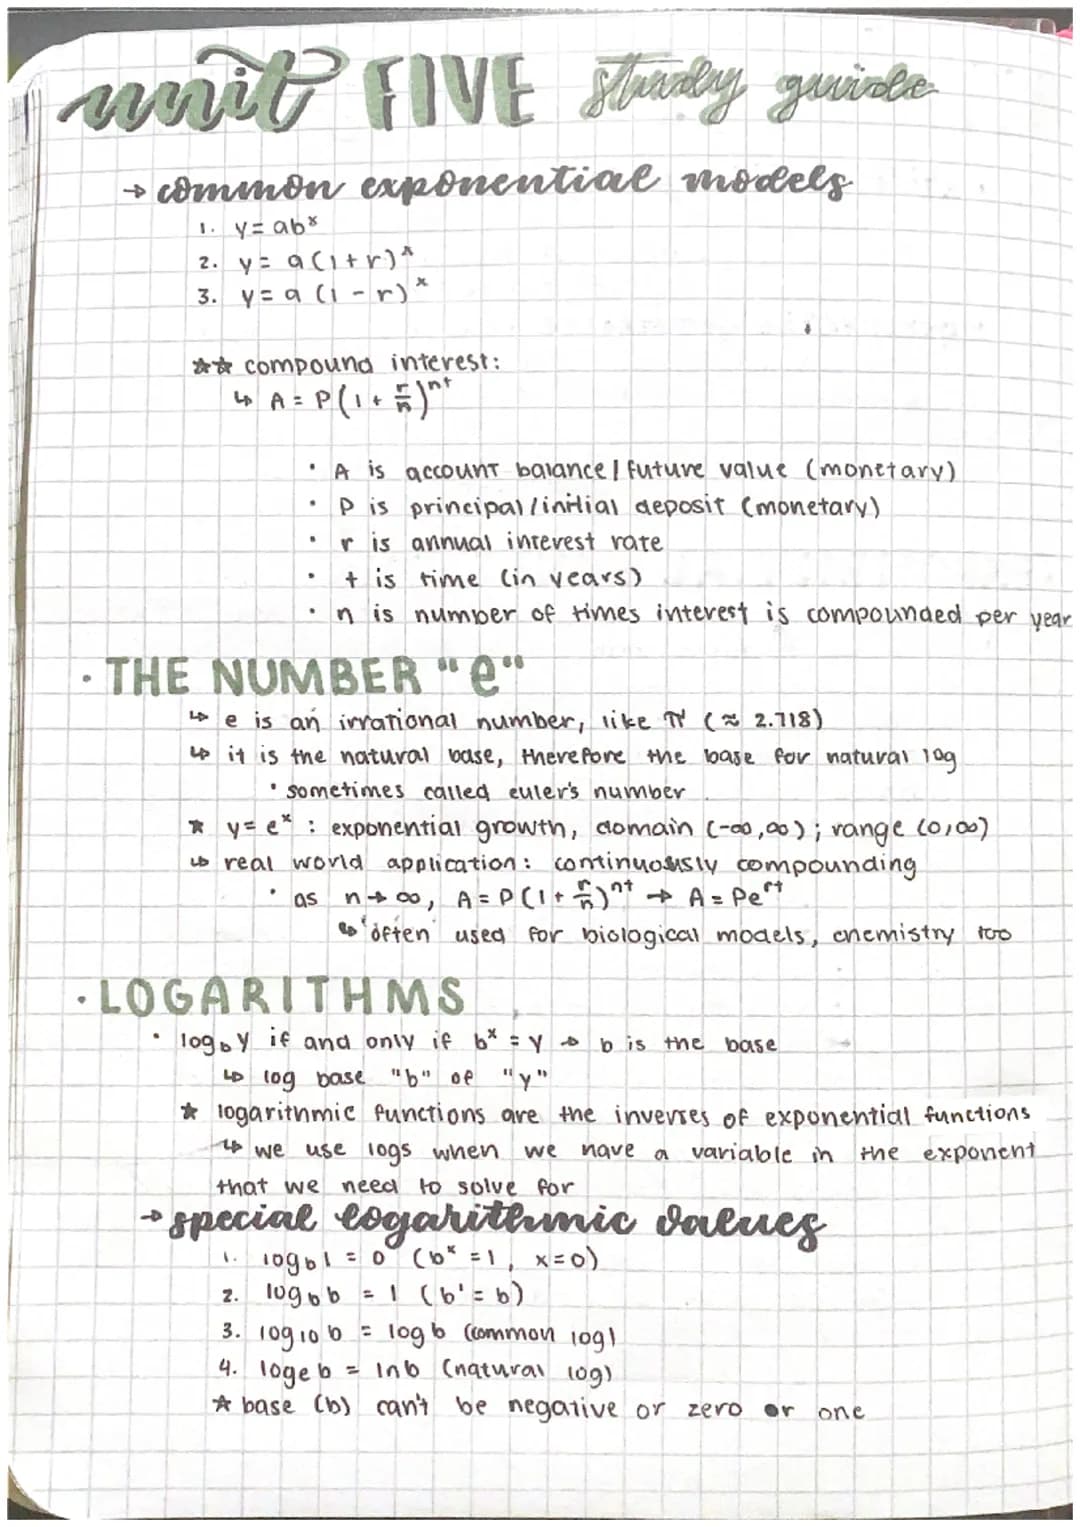 unit FIVE study guide
→ common exponential models
1. y = ab^x
2. y = a(1+r)^x
3. y = a (1 - r)^x
☆☆ compound interest:
↳ A = P(1 + r/n)^nt
• A is account balance / future value (monetary)
• P is principal / initial deposit (monetary)
• r is annual interest rate
• t is time (in years)
• n is number of times interest is compounded per year
• THE NUMBER "e"
↳ e is an irrational number, like π (≈ 2.718)
↳ it is the natural base, therefore the base for natural log
• sometimes called euler's number
☆ y = e^x : exponential growth, domain (-∞,∞); range (0,∞)
↳ real world application: continuously compounding
• as n→∞, A = P(1 + r/n)^nt → A = Pe^rt
↳ often used for biological models, chemistry too
• LOGARITHMS
• log_b y if and only if b^x = y → b is the base
↳ log base "b" of "y"
☆ logarithmic functions are the inverses of exponential functions
↳ we use logs when we have a variable in the exponent
that we need to solve for
→ special logarithmic values
1. log_b 1 = 0 (b^x = 1, x=0)
2. log_b b = 1 (b^1 = b)
3. log_10 b = log b (common log)
4. log_e b = ln b (natural log)
☆ base (b) can't be negative or zero or one